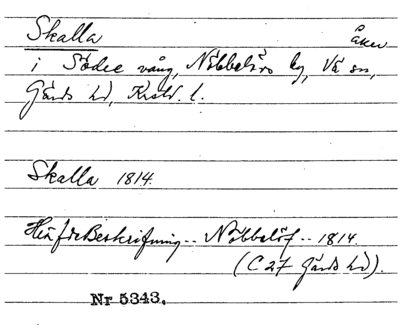 Skalla åker
i Söder vång, Nöbbelövs by, Vä sn,
Gärds hd, Krist. l.
Skalla 1814.
Beskrifning .. Nöbbelöf .. 1814.
(C27 Gärds hd).
Nr 5343.